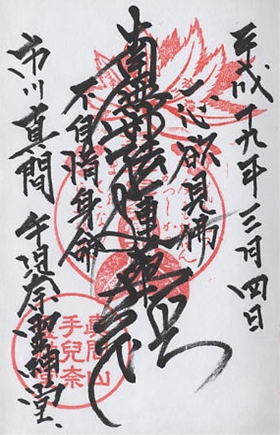 平成十九年三月四日
一心欲見佛
南無妙法蓮華経
不自惜身命
市川真間 手児奈霊神堂
眞間山
手兒奈